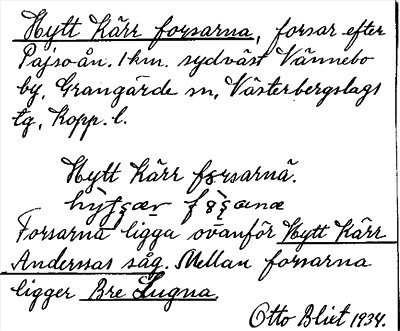 Hytt Kärr forsarna, forsar efter
Pajsoån. 1 km. sydväst Vännebo
by, Grangärde sn, Västerbergslags
tg, Kopp. l.
Hytt Kärr forsarnä.
Forsarna ligga ovanför Hytt Kärr
Anderssas såg. Mellan forsarna
ligger Bre Lugna.
Otto Blixt 1934.